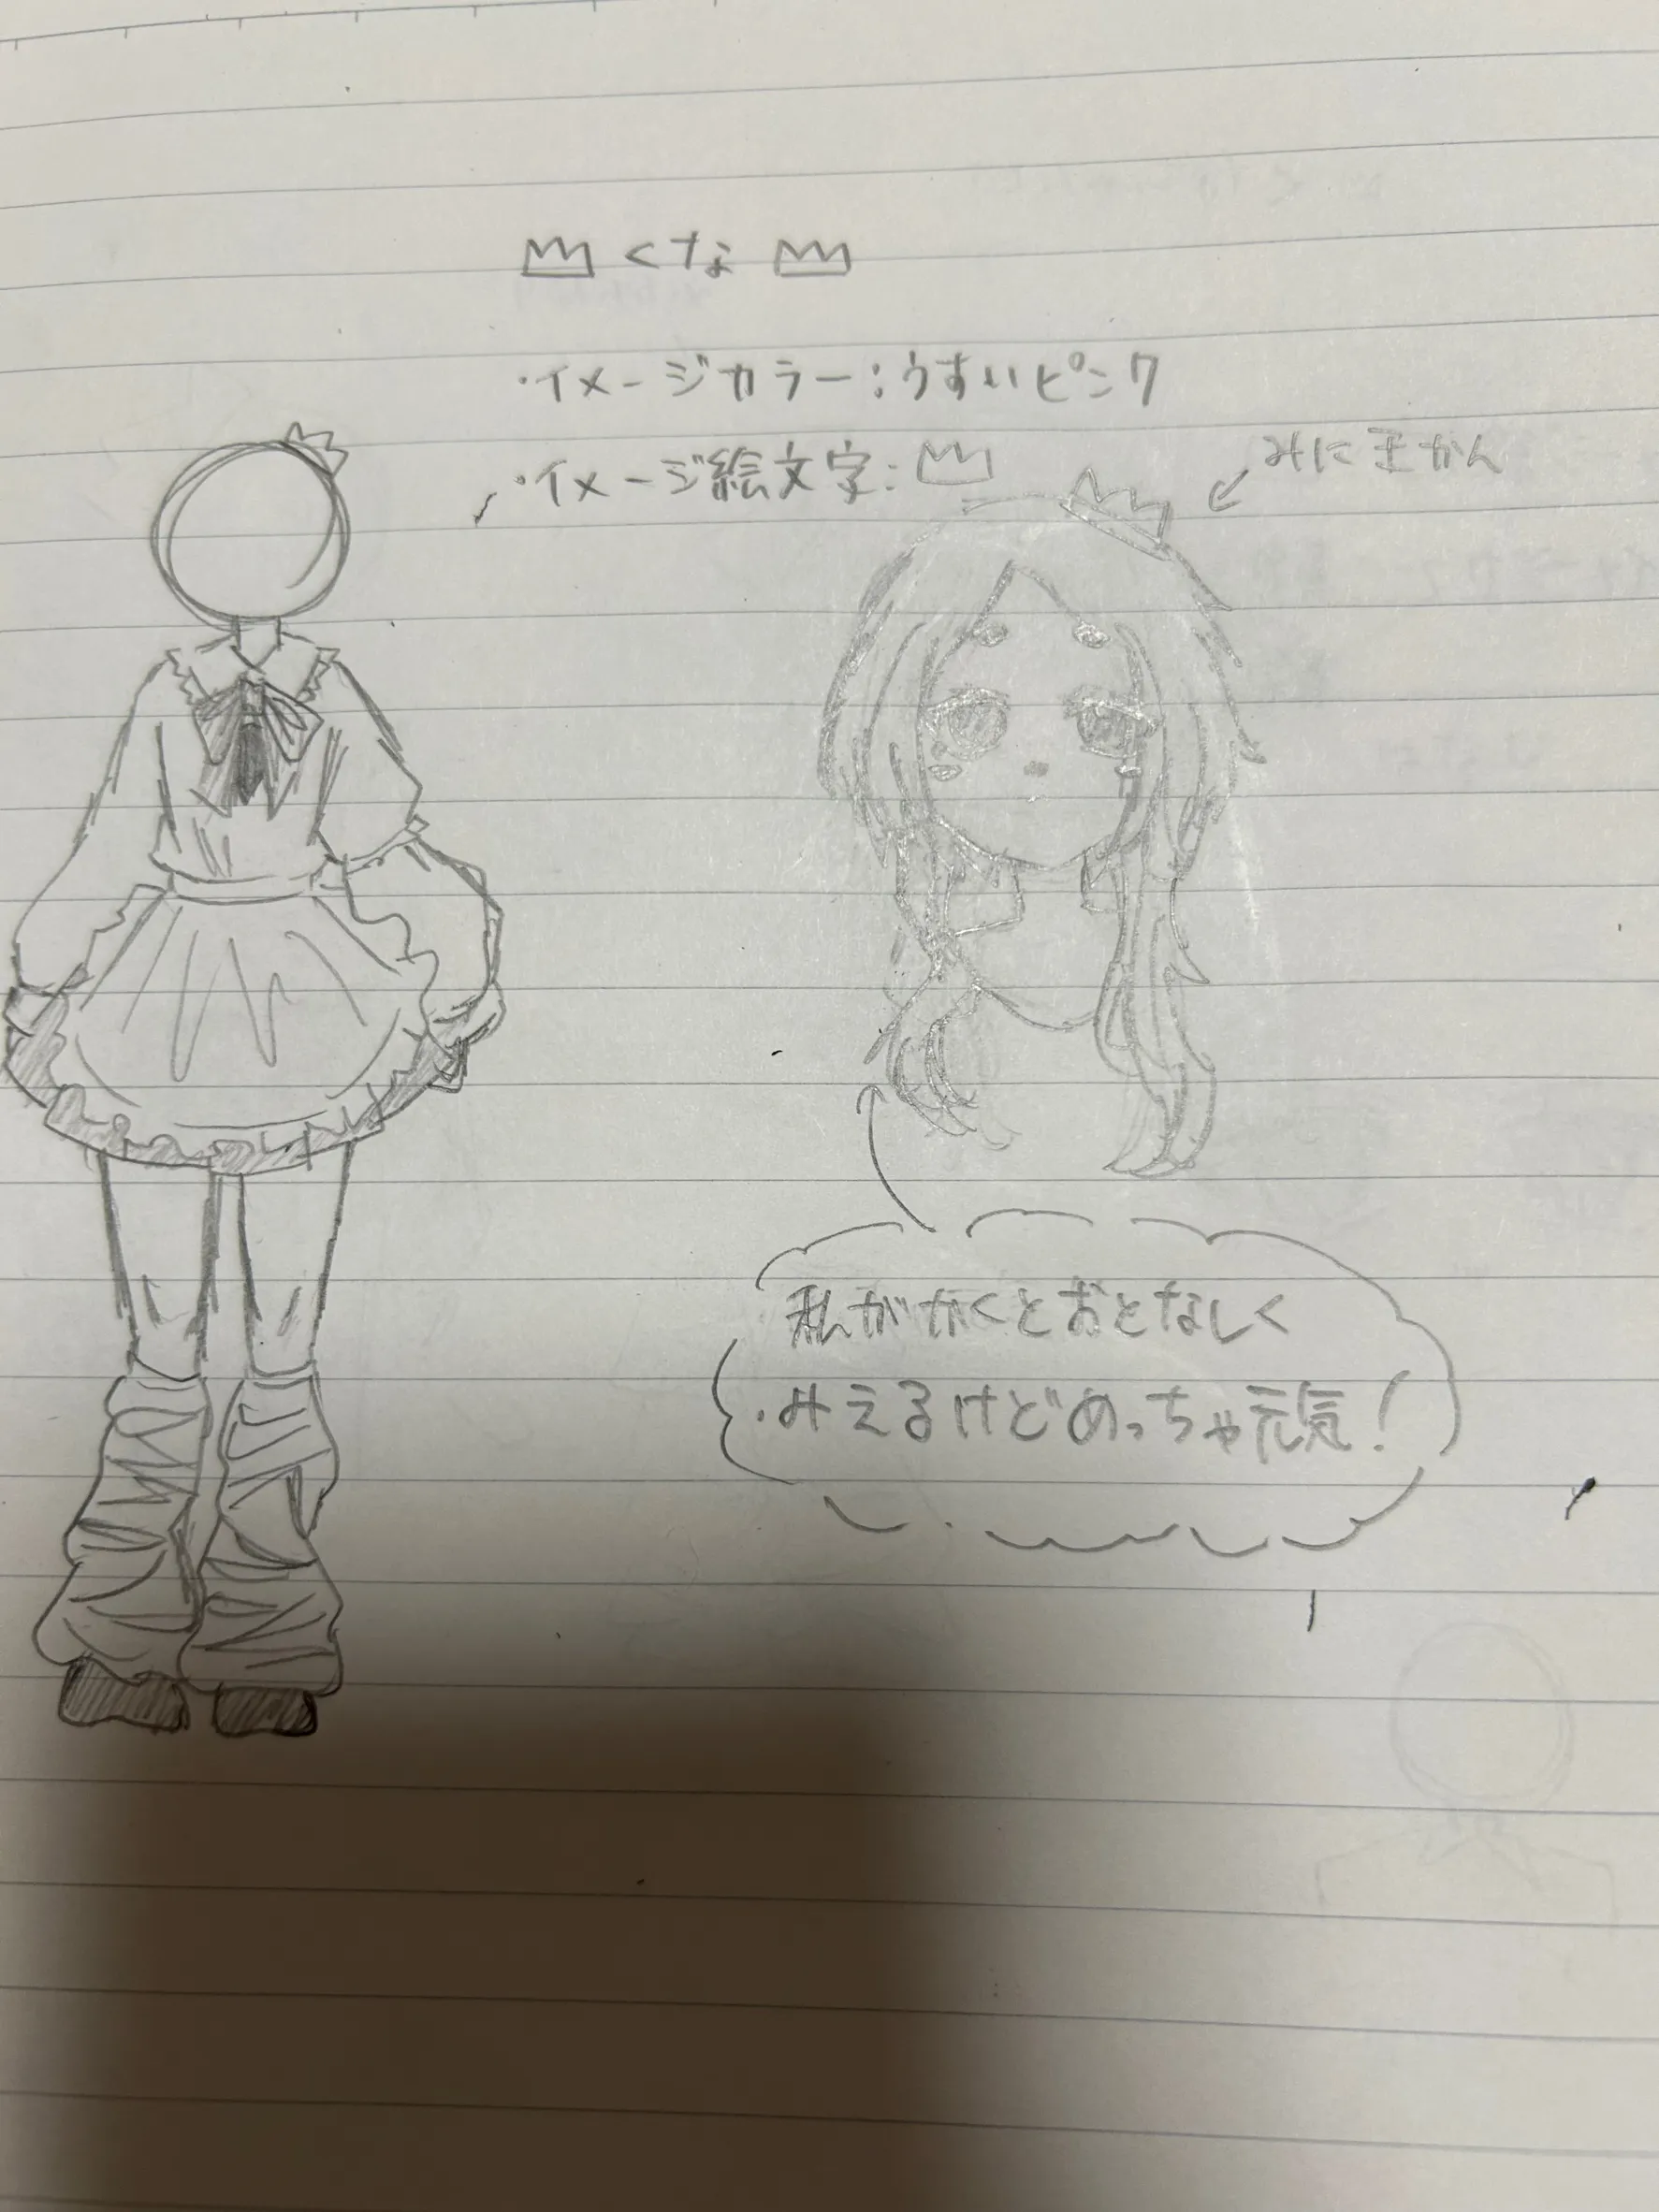 くな
・イメージカラー：うすいピンク
・イメージ絵文字：
みに王かん
私がかくとおとなしく
みえるけどめっちゃ元気！